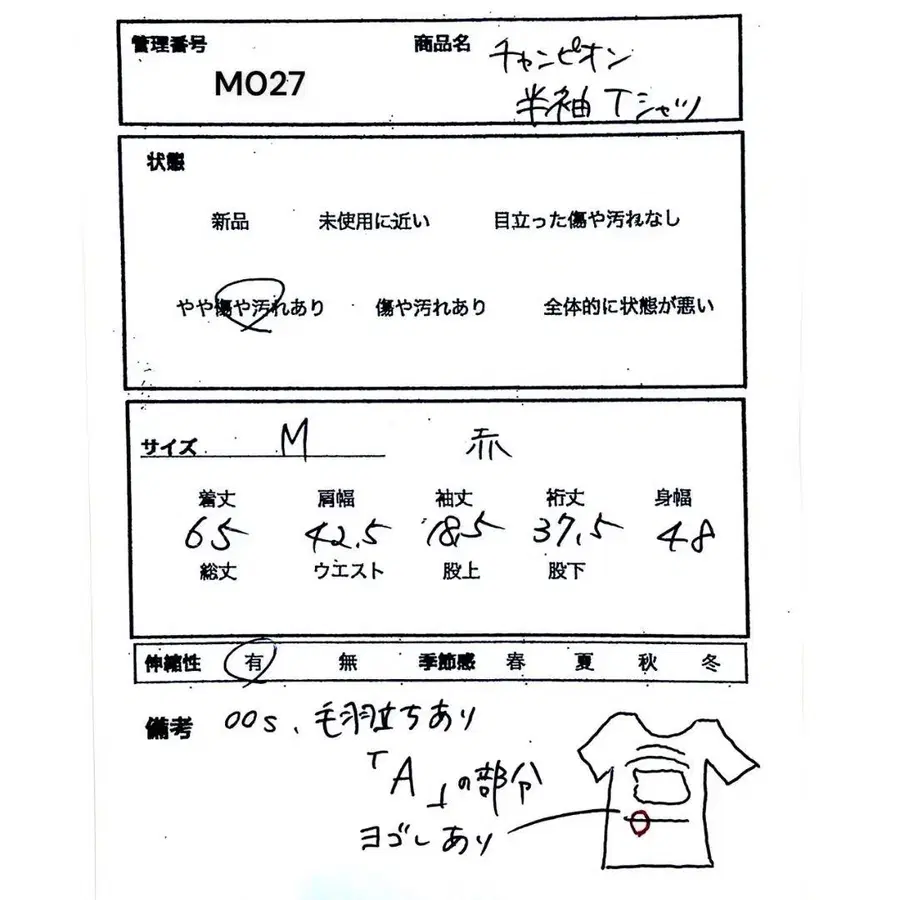 管理番号 商品名 チャンピオン
M027 半袖Tシャツ
状態
新品 未使用に近い 目立った傷や汚れなし
やや傷や汚れあり 傷や汚れあり 全体的に状態が悪い
サイズ M 赤
着丈 肩幅 袖丈 裄丈 身幅
65 42.5 18.5 37.5 48
総丈 ウエスト 股上 股下
伸縮性 有 無 季節感 春 夏 秋 冬
備考 00s、毛羽立ちあり
「A」の部分
ヨゴレあり